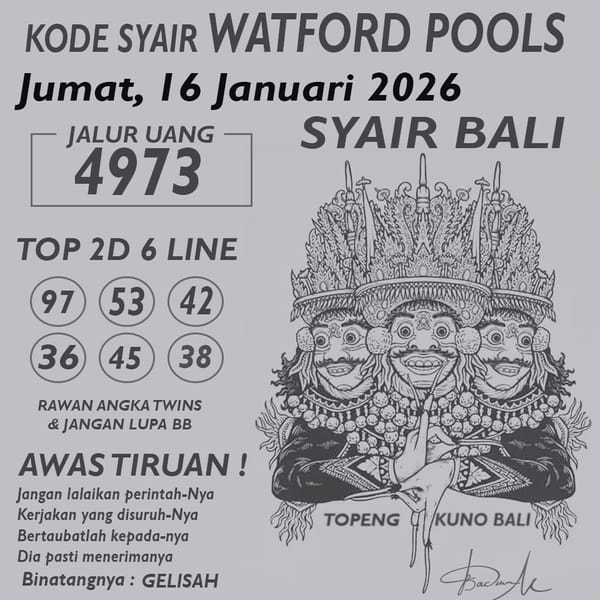 KODE SYAIR WATFORD POOLS
Jumat, 16 Januari 2026
JALUR UANG
4973
SYAIR BALI
TOP 2D 6 LINE
97 53 42
36 45 38
RAWAN ANGKA TWINS
& JANGAN LUPA BB
AWAS TIRUAN !
Jangan lalaikan perintah-Nya
Kerjakan yang disuruh-Nya
Bertaubatlah kepada-nya
Dia pasti menerimanya
Binatangnya : GELISAH
TOPENG KUNO BALI